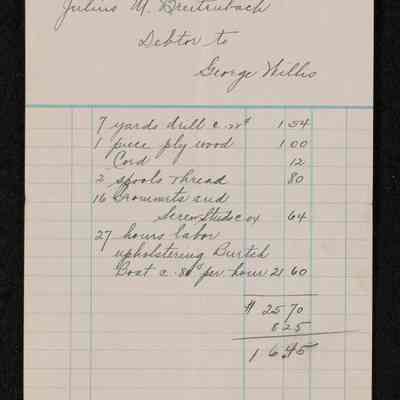 Julius M. Breitenbach
Debtor to
George Willis
7 yards drill @ 22¢ 1 54
1 piece ply wood 1 00
Cord 12
2 spools thread 80
16 Grommits and
Screw Studs @ 04 64
27 hours labor
upholstering Burted
Boat @ .80¢ per hour 21 60
$ 25 70
8 25
1 6 45